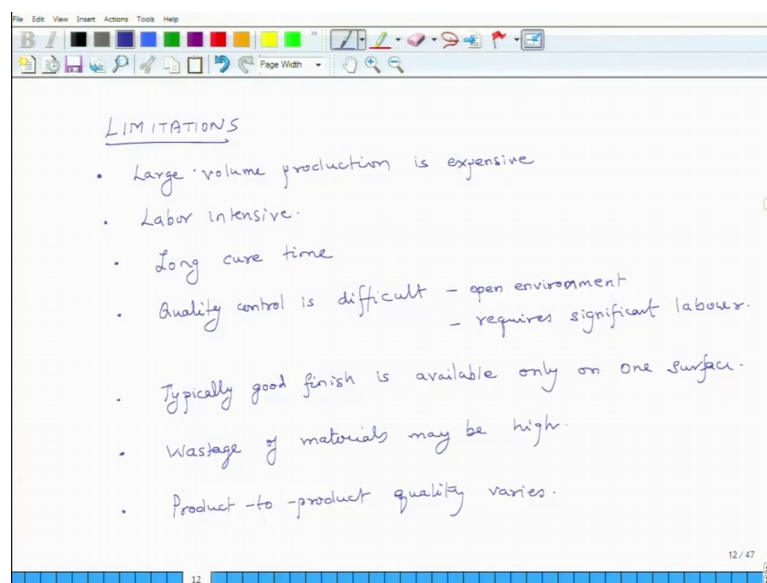 File Edit View Insert Actions Tools Help
B I
Page Width
LIMITATIONS
• Large-volume production is expensive
• Labor intensive.
• Long cure time
• Quality control is difficult – open environment
– requires significant labour.
• Typically good finish is available only on one surface.
• Wastage of materials may be high.
• Product-to-product quality varies.
12 / 47
12